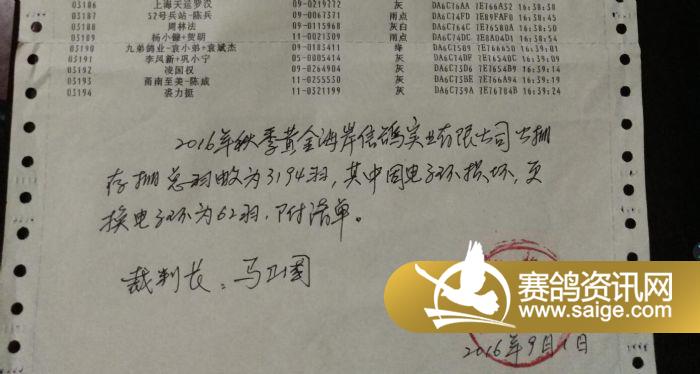 03186 上海天运罗汉 09-0219772 灰 DA6C76AA 7E766A32 16:38:38
03187 52号兵站-陈兵 09-0067371 雨点 DA6C74FD 1E89FAF0 16:38:45
03188 周林法 09-0115968 灰白 DA6C764C 7E6580A0 16:38:50
03189 杨小健+贺朝 11-0021309 雨点 DA6C74DC 1E8A04D1 16:38:54
03190 九弟鸽业-袁小弟+袁斌杰 09-0183411 绛 DA6C7509 7E766650 16:39:01
03191 李凤新+巩小宁 05-0005414 灰 DA6C74DF 7E76540C 16:39:09
03192 凌国权 09-0264904 灰 DA6C73D6 7E7654B9 16:39:14
03193 甬南至美-陈威 11-0255530 灰 DA6C75BE 7E766A94 16:39:19
03194 裘力挺 11-0321199 灰 DA6C739A 7E76704B 16:39:24
2016年秋季黄金海岸信鸽实业有限公司公棚
存棚总羽数为3194羽,其中因电子环损坏,更
换电子环为62羽,下附清单。
裁判长:马卫国
2016年9月1日
赛鸽资讯网
www.saige.com